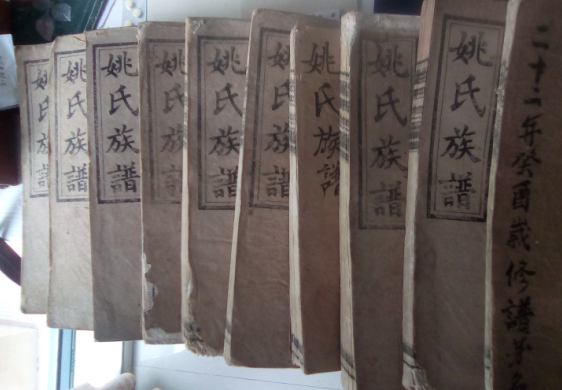 姚氏族譜
姚氏族譜
姚氏族譜
姚氏族譜
姚氏族譜
姚氏族譜
姚氏族譜
姚氏族譜
姚氏族譜
二十二年癸酉歲修譜